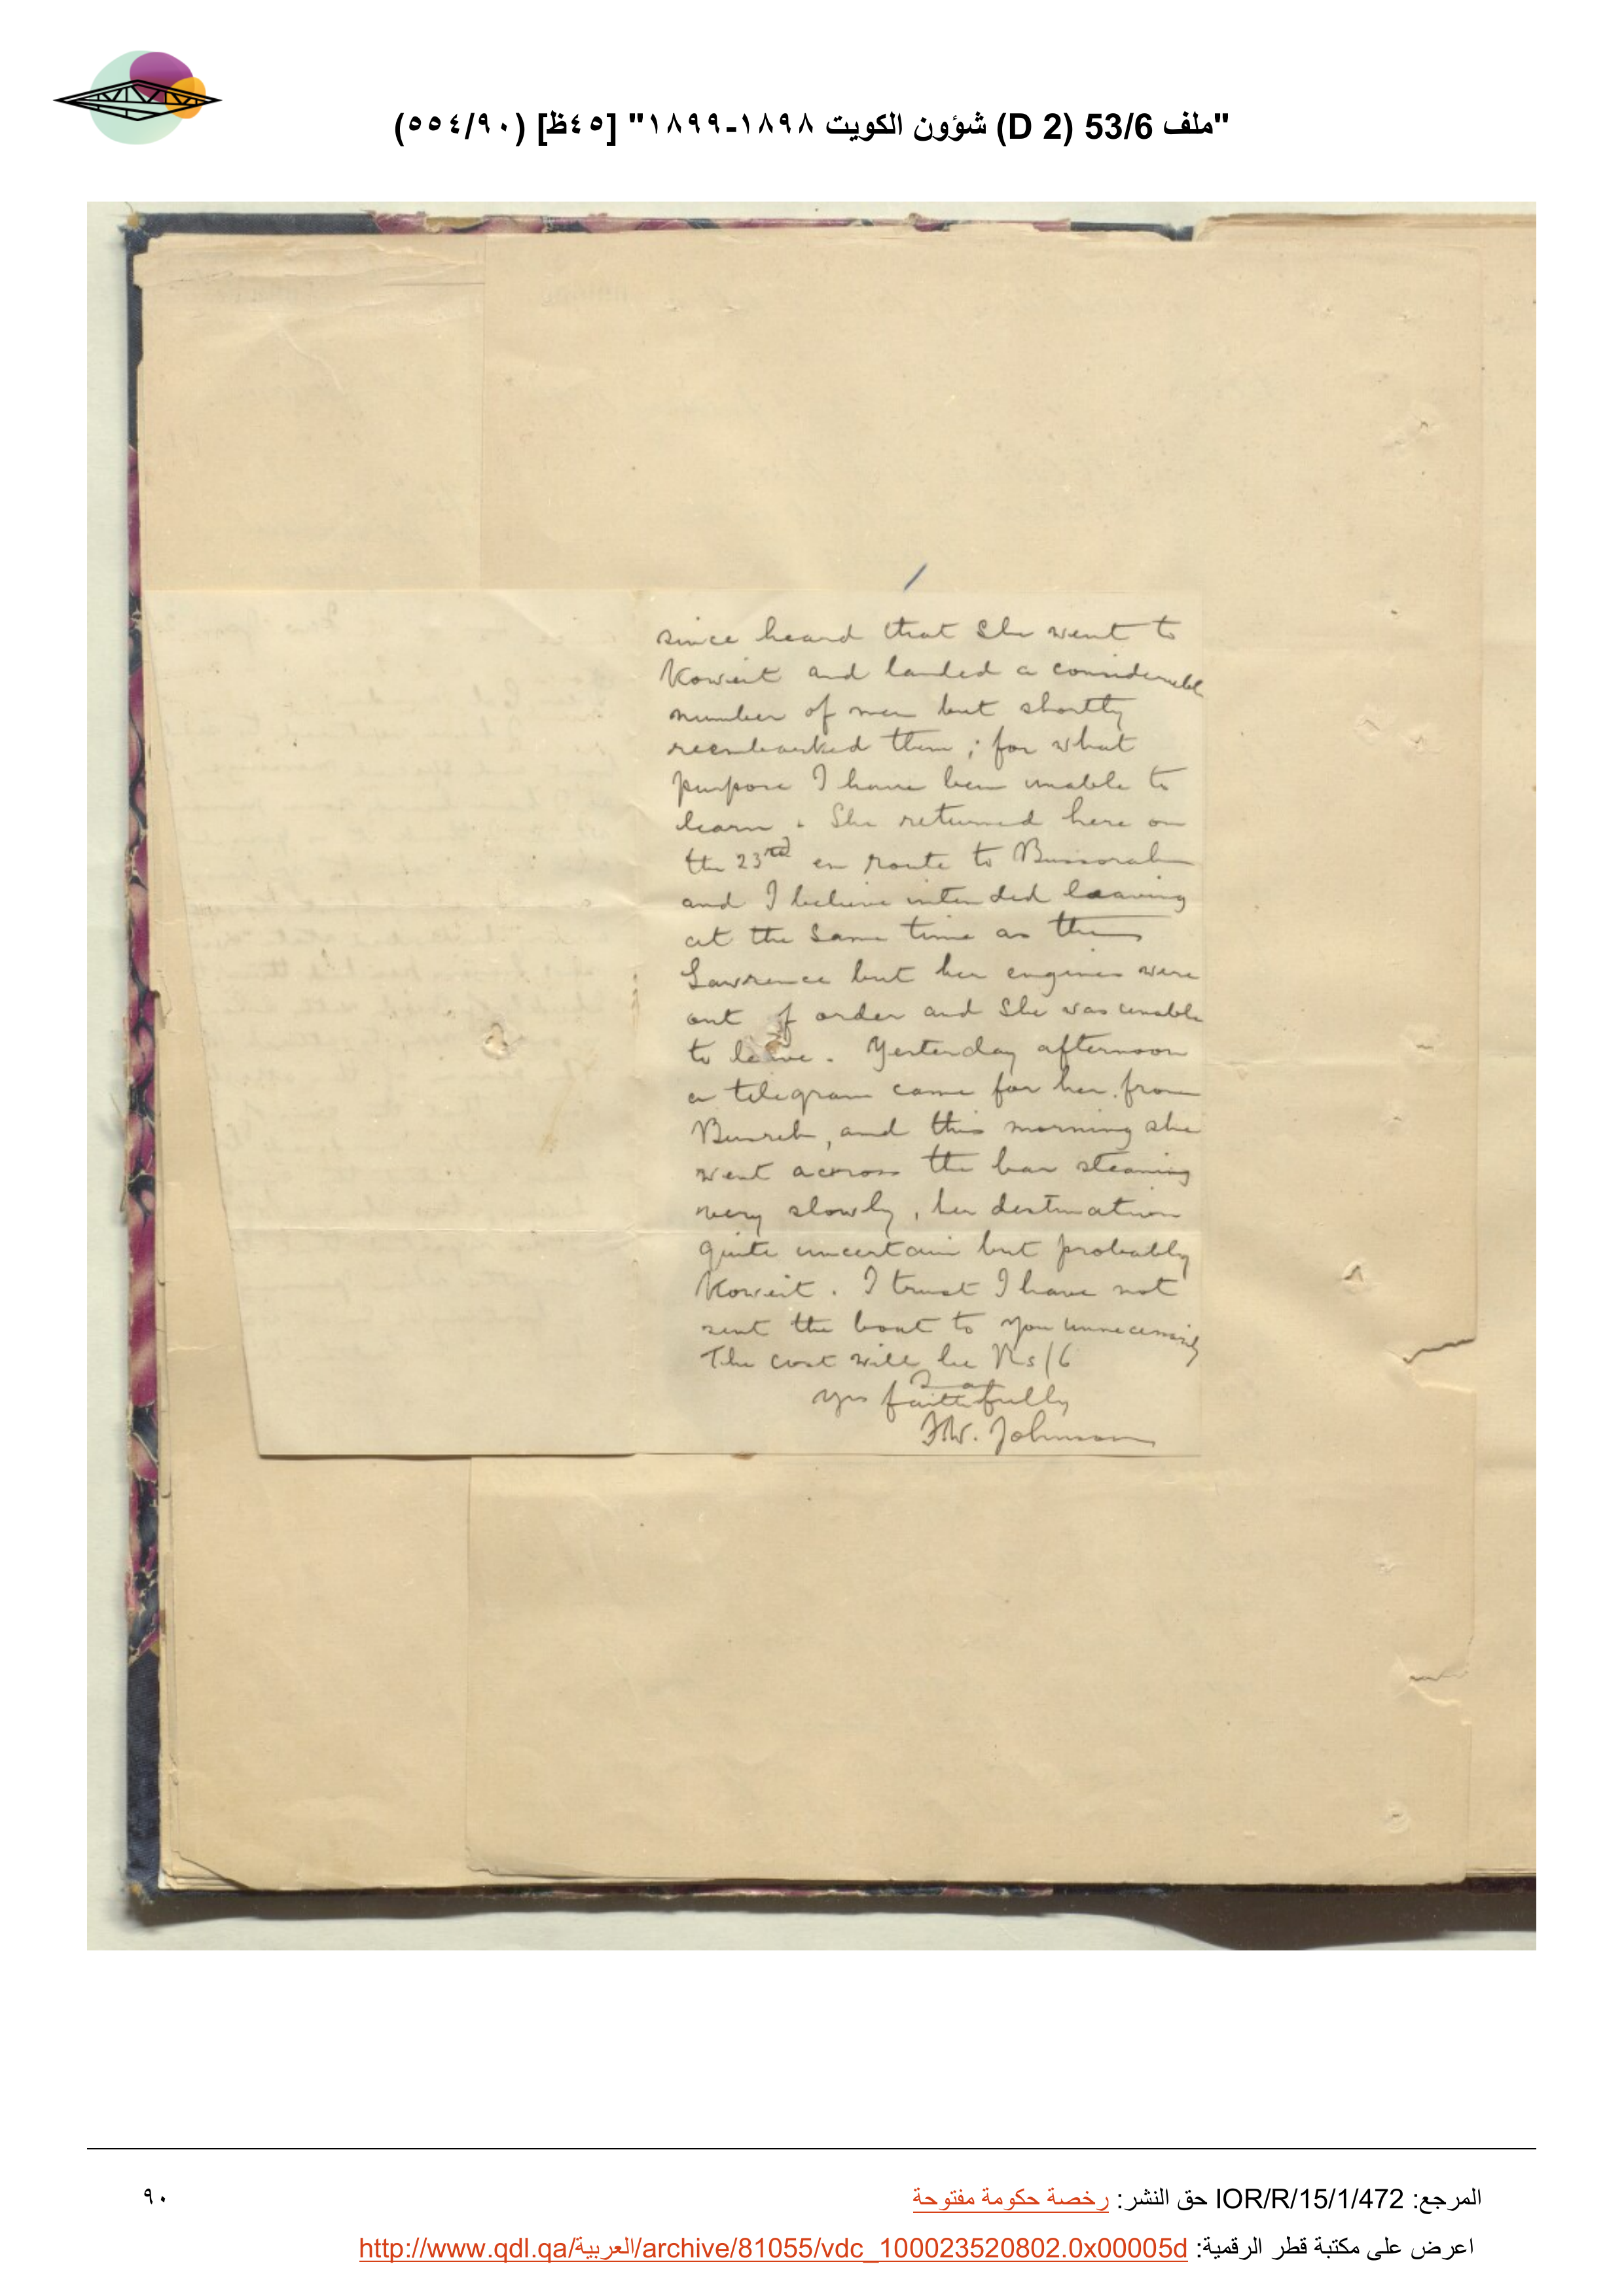 "ملف 53/6 (D 2) شؤون الكويت ١٨٩٨-١٨٩٩" [٤٥ظ] (٥٥٤/٩٠)
since heard that she went to
Koweit and landed a considerable
number of men but shortly
reembarked them; for what
purpose I have been unable to
learn. She returned here on
the 23rd en route to Bussorah
and I believe intended leaving
at the same time as the
Lawrence but her engines were
out of order and she was unable
to leave. Yesterday afternoon
a telegram came for her from
Busreh, and this morning she
went across the bar steaming
very slowly, her destination
quite uncertain but probably
Koweit. I trust I have not
sent the boat to you unnecessarily
The cost will be Rs/6
Yrs faithfully
F.W. Johnson
المرجع: IOR/R/15/1/472 حق النشر: رخصة حكومة مفتوحة
٩٠
اعرض على مكتبة قطر الرقمية: http://www.qdl.qa/العربية/archive/81055/vdc_100023520802.0x00005d